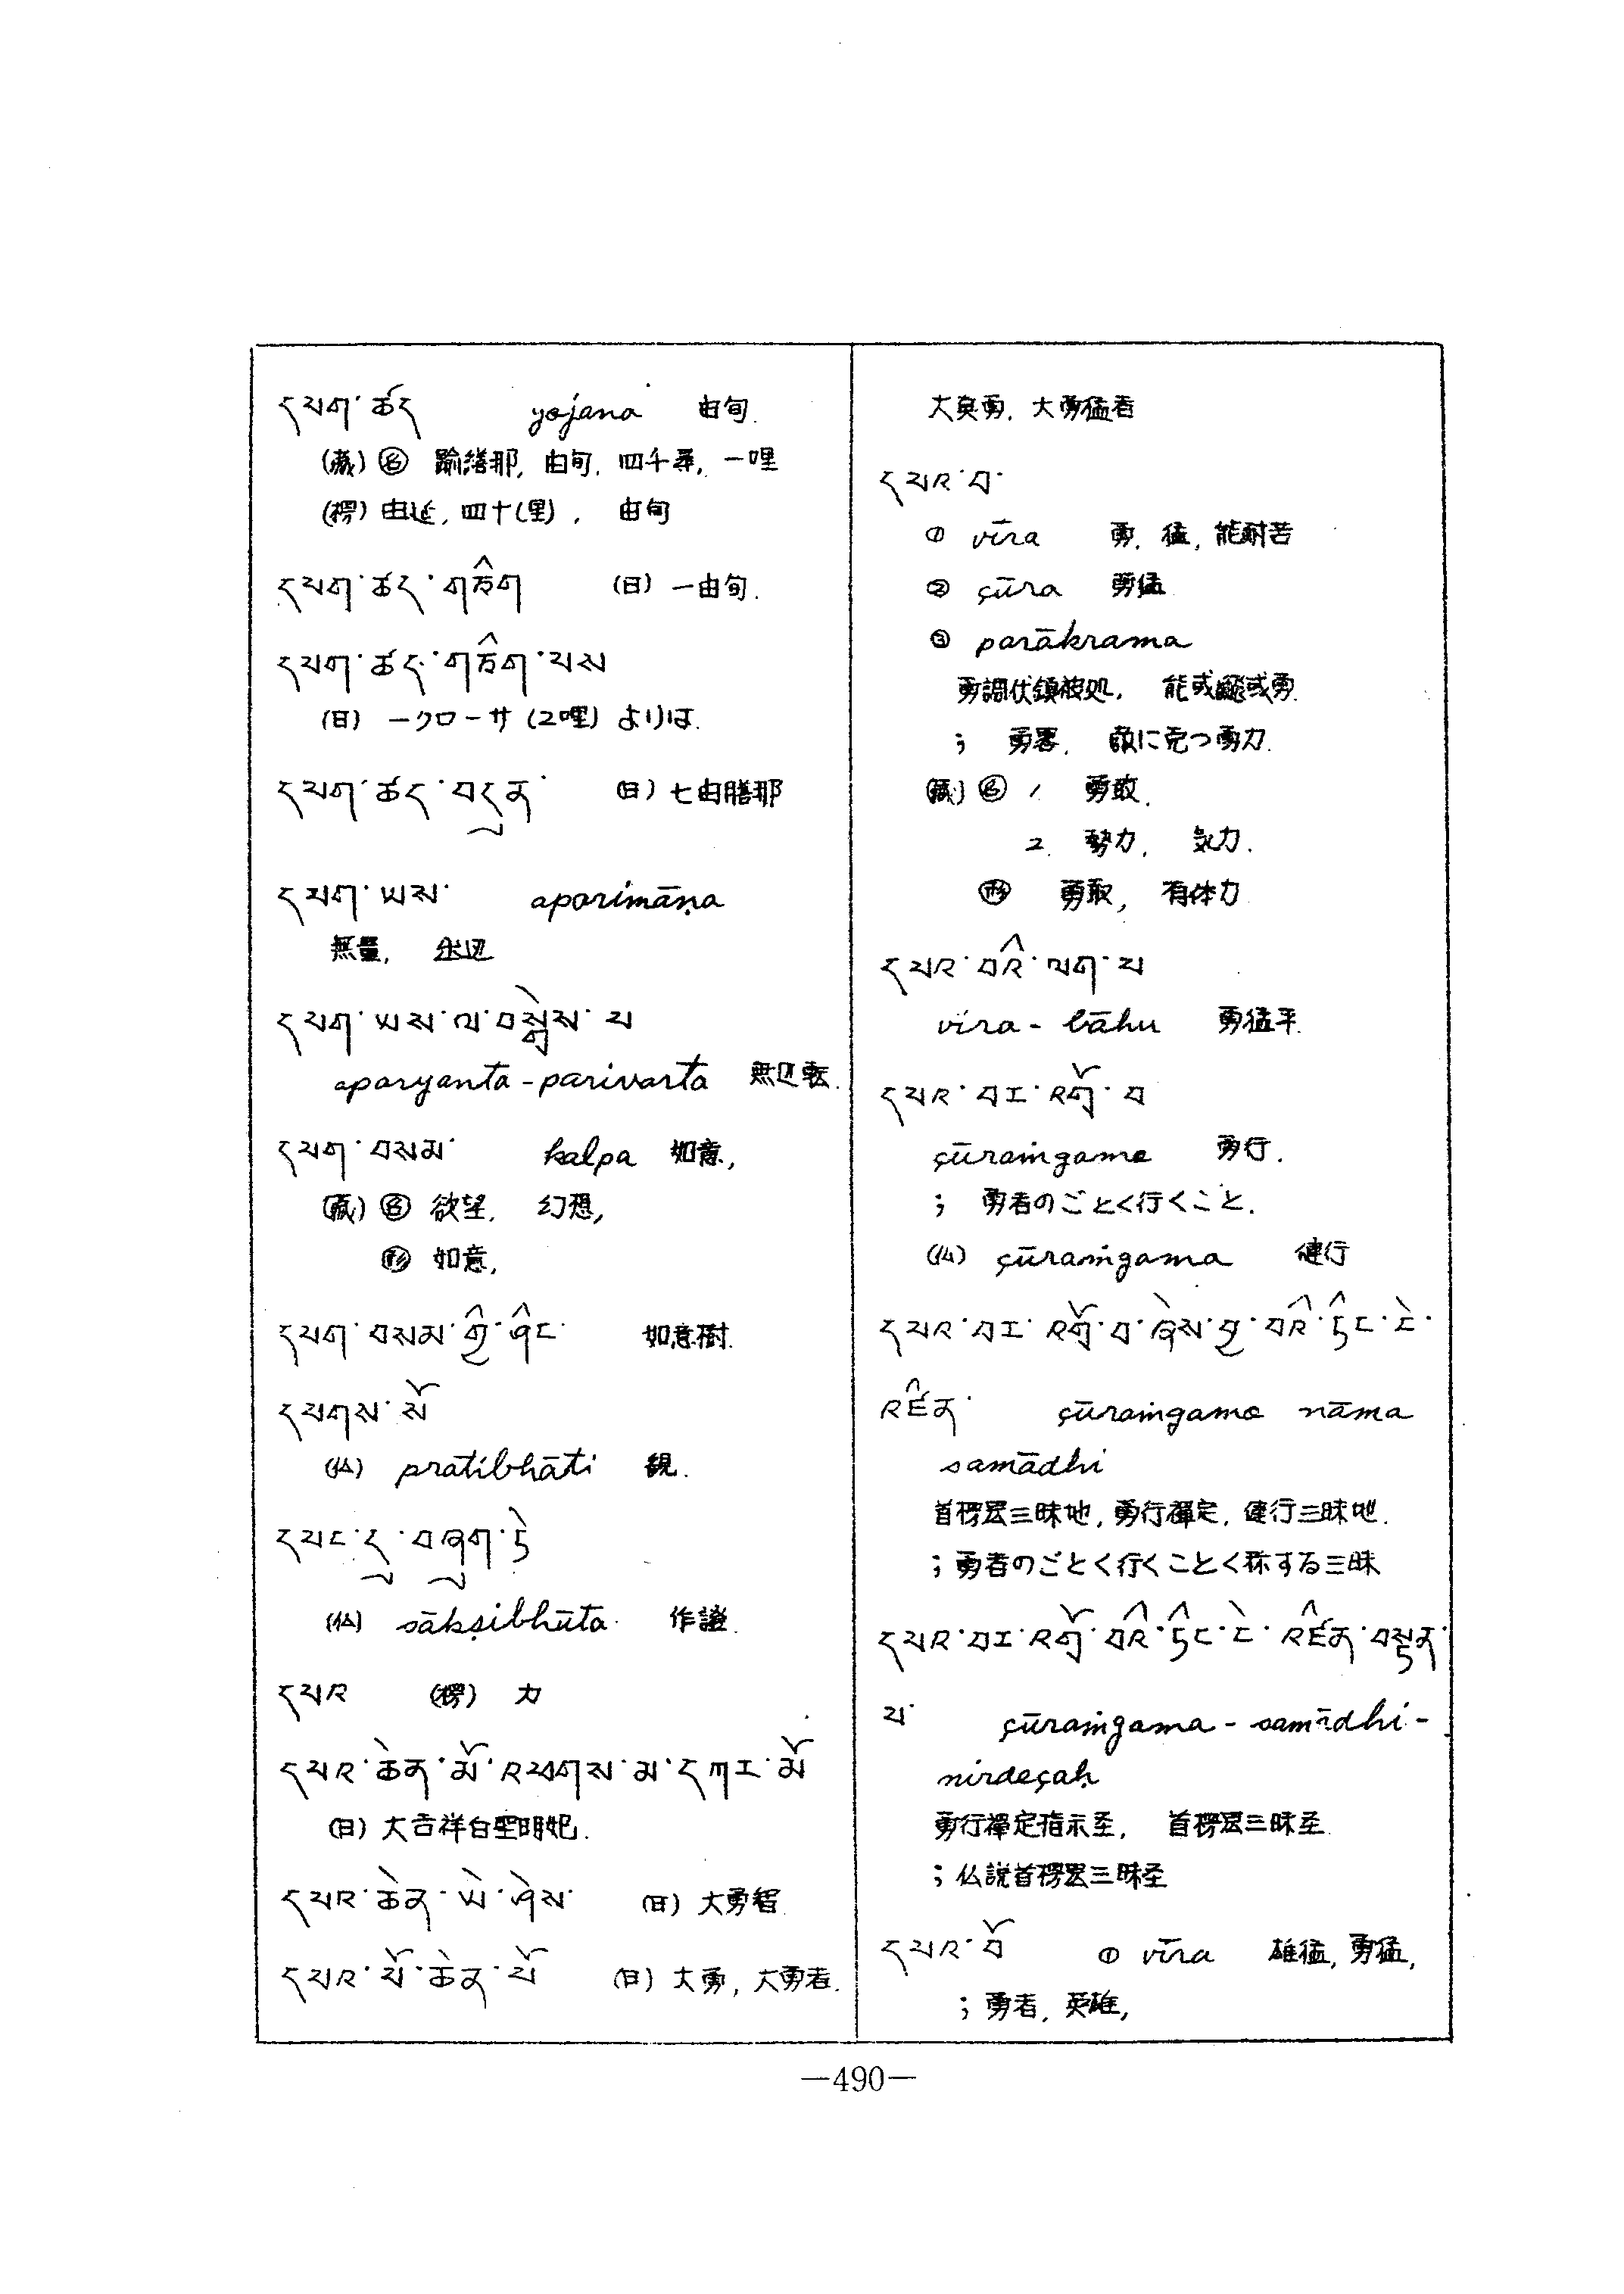 དཔག་ཚད yojana 由旬.
(蔵) ㊔ 踰繕那, 由旬, 四千尋, 一哩
(楞) 由延, 四十(里), 由旬
དཔག་ཚད་གཅིག (日) 一由旬.
དཔག་ཚད་གཅིག་པས
(日) 一クローサ (2哩) よりは.
དཔག་ཚད་བདུན་ (日) 七由膳那
དཔག་ཡས་ aparimāṇa
無量,
དཔག་ཡས་ལ་བསྒྲེས་པ
aparyanta-parivarta 無辺転.
དཔག་བསམ་ kalpa 如意,
(蔵) ㊔ 欲望, 幻想,
形 如意,
དཔག་བསམ་གྱི་ཤིང་ 如意樹.
དཔགས་སོ
(仏) pratibhāti 観.
དཔང་དུ་བཞུག་ཏེ
(仏) sākṣibhūta 作證.
དཔའ (楞) 力
དཔའ་ཆེན་མོ་འཕགས་མ་དཀར་མོ
(日) 大吉祥白聖明妃.
དཔའ་ཆེན་ཡེ་ཤེས་ (日) 大勇智
དཔའ་པོ་ཆེན་པོ (日) 大勇, 大勇者.
大奥勇, 大勇猛者
དཔའ་བ་
① vīra 勇, 猛, 能耐苦
② çūra 勇猛
③ parākrama
勇調伏鎮被処, 能或 或勇.
; 勇署, 敵に克つ勇力.
(蔵) ㊔ 1. 勇敢.
2. 勢力, 気力.
形 勇敢, 有体力
དཔའ་བའི་ལག་པ
vira-bāhu 勇猛手.
དཔའ་བར་འགྲོ་བ
çūraṁgama 勇行.
; 勇者のごとく行くこと.
(仏) çūraṁgama 健行
དཔའ་བར་འགྲོ་བ་ཞེས་བྱ་བའི་ཏིང་ངེ་
འཛིན་ çūraṁgama nāma
samādhi
首楞嚴三昧地, 勇行禪定, 健行三昧地.
; 勇者のごとく行くことく称する三昧
དཔའ་བར་འགྲོ་བའི་ཏིང་ངེ་འཛིན་བསྟན་
པ་ çūraṁgama-samādhi-
nirdeçaḥ
勇行禪定指示圣, 首楞嚴三昧圣.
; 仏説首楞嚴三昧圣
དཔའ་བོ ① vīra 雄猛, 勇猛,
; 勇者, 英雄,
—490—